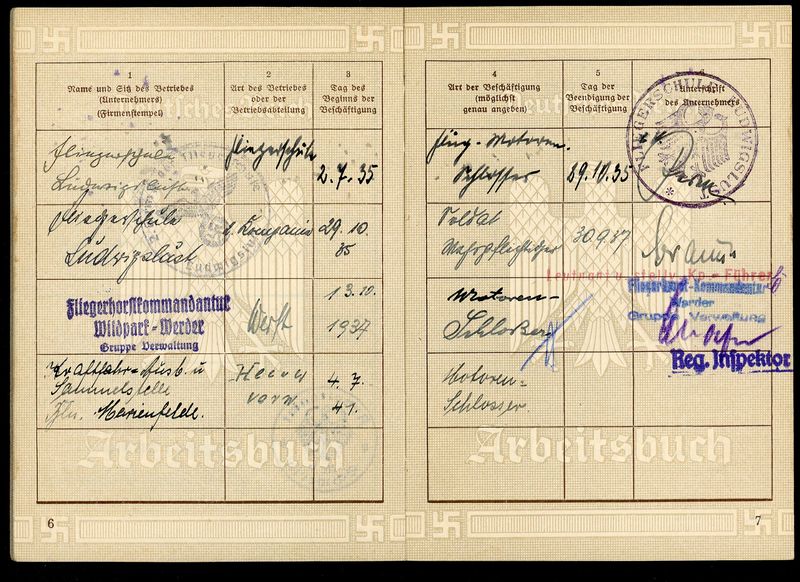 1
Name und Sitz des Betriebes
(Unternehmers)
(Firmenstempel)
2
Art des Betriebes
oder der
Betriebsabteilung
3
Tag des
Beginns der
Beschäftigung
Fliegerschule
Ludwigslust
Fliegerschule
2.7.35
Fliegerschule
Ludwigslust
1. Kompanie
29.10.
35
Fliegerhorstkommandantur
Wildpark-Werder
Gruppe Verwaltung
Werft
13.10.
1937
Kraftfahr-Ausb. u
Sammelstelle
Bln. Marienfelde.
Heeres
4.7.
41.
Arbeitsbuch
6
4
Art der Beschäftigung
(möglichst
genau angeben)
5
Tag der
Beendigung der
Beschäftigung
6
Unterschrift
des Unternehmers
FLIEGERSCHULE LUDWIGSLUST
Flug-Motoren-
Schlosser
29.10.35
Soldat
Wehrpflichtiger
30.9.37
Leutnant u. stellv. Kp.-Führer
Motoren-
Schlosser
Fliegerhorst-Kommandantur
Werder
Gruppe Verwaltung
Reg. Inspektor
Motoren-
Schlosser.
Arbeitsbuch
7